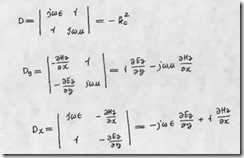 D = | jωε γ ; γ jωμ | = - k_c^2
D_y = | -∂H_z/∂x γ ; -∂E_z/∂y jωμ | = γ ∂E_z/∂y - jωμ ∂H_z/∂x
D_x = | jωε -∂H_z/∂x ; γ -∂E_z/∂y | = -jωε ∂E_z/∂y + γ ∂H_z/∂x